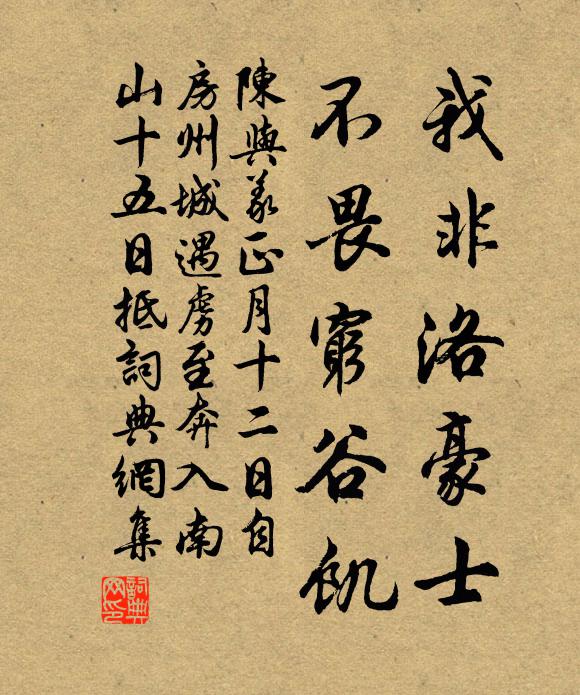 我非洛豪士
不畏窮谷飢
陳與義正月十二日自
房州城遇虜至奔入南
山十五日抵詞典網集
詞典网印